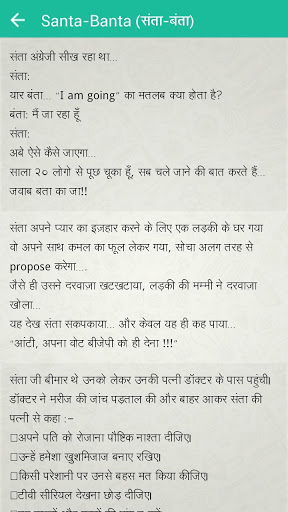 Santa-Banta (संता-बंता)
संता अंग्रेजी सीख रहा था...
संता:
यार बंता... “I am going” का मतलब क्या होता है?
बंता: मैं जा रहा हूँ
संता:
अबे ऐसे कैसे जाएगा...
साला २० लोगो से पूछ चूका हूँ, सब चले जाने की बात करते हैं...
जवाब बता का जा!!
संता अपने प्यार का इज़हार करने के लिए एक लड़की के घर गया
वो अपने साथ कमल का फूल लेकर गया, सोचा अलग तरह से
propose करेगा....
जैसे ही उसने दरवाज़ा खटखटाया, लड़की की मम्मी ने दरवाजा
खोला...
यह देख संता सकपकाया... और केवल यह ही कह पाया...
“आंटी, अपना वोट बीजेपी को ही देना !!!”
संता जी बीमार थे उनको लेकर उनकी पत्नी डॉक्टर के पास पहुंची।
डॉक्टर ने मरीज की जांच पड़ताल की और बाहर आकर संता की
पत्नी से कहा :–
□अपने पति को रोजाना पौष्टिक नाश्ता दीजिए।
□उन्हें हमेशा खुशमिजाज बनाए रखिए।
□किसी परेशानी पर उनसे बहस मत किया कीजिए।
□टीवी सीरियल देखना छोड़ दीजिए।